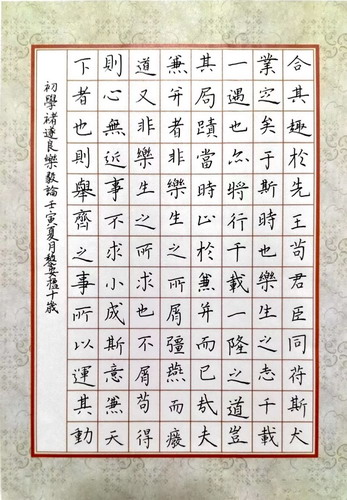 合其趣於先王苟君臣同符斯大
業定矣于斯時也樂生之志千載
一遇也亦將行千載一隆之道豈
其局蹟當時止於兼并而已哉夫
兼并者非樂生之所屑彊燕而廢
道又非樂生之所求也不屑苟得
則心無近事不求小成斯意兼天
下者也則舉齊之事所以運其動
初學褚遂良樂毅論壬寅夏月黎十歲